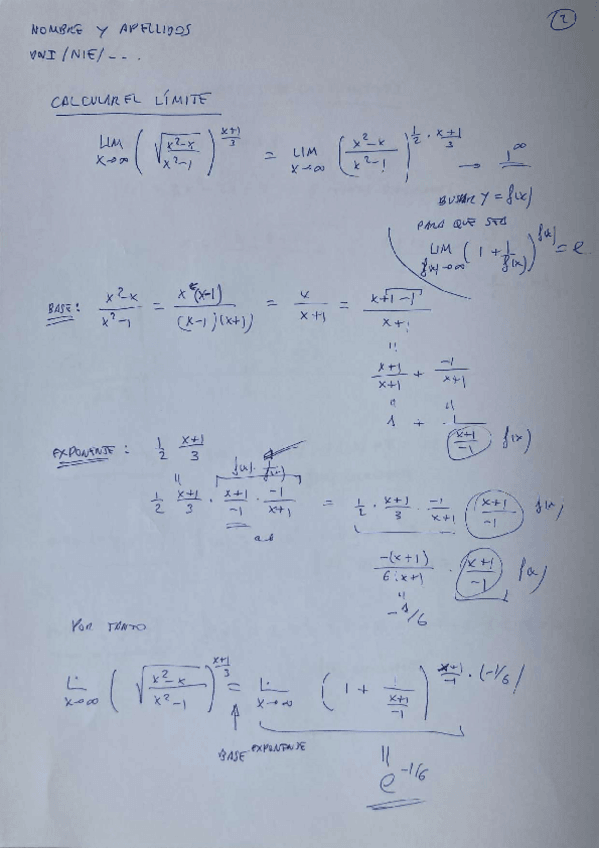 2
NOMBRE Y APELLIDOS
DNI/NIE/---
CALCULAR EL LÍMITE
LIM x→∞ ( √(x²-x / x²-1) )^(x+1 / 3) = LIM x→∞ ( x²-x / x²-1 )^(1/2 · x+1 / 3) → 1^∞
BUSCAR Y = f(x)
PARA QUE SEA
LIM f(x)→∞ ( 1 + 1/f(x) )^f(x) = e
BASE: x²-x / x²-1 = x(x-1) / (x-1)(x+1) = x / x+1 = x+1-1 / x+1
=
x+1 / x+1 + -1 / x+1
=
1 + 1 / (x+1 / -1) f(x)
EXPONENTE: 1/2 x+1 / 3
f(x) · 1/f(x)
=
1/2 x+1 / 3 · x+1 / -1 · -1 / x+1 = 1/2 · x+1 / 3 · -1 / x+1 · x+1 / -1 f(x)
-(x+1) / 6·x+1 · x+1 / -1 f(x)
=
-1/6
POR TANTO
L. x→∞ ( √(x²-x / x²-1) )^(x+1 / 3) = L. x→∞ ( 1 + 1 / (x+1 / -1) )^(x+1 / -1 · (-1/6)
BASE EXPONENTE
=
e^-1/6